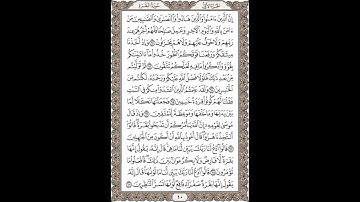 سُورَةُ البَقَرَةِ الجُزْءُ الأَوَّلُ
إِنَّ الَّذِينَ ءَامَنُوا وَالَّذِينَ هَادُوا وَالنَّصَٰرَىٰ وَالصَّٰبِـِٔينَ مَنْ
ءَامَنَ بِاللَّهِ وَالْيَوْمِ الْءَاخِرِ وَعَمِلَ صَٰلِحًا فَلَهُمْ أَجْرُهُمْ عِندَ
رَبِّهِمْ وَلَا خَوْفٌ عَلَيْهِمْ وَلَا هُمْ يَحْزَنُونَ ٦٢ وَإِذْ أَخَذْنَا
مِيثَٰقَكُمْ وَرَفَعْنَا فَوْقَكُمُ الطُّورَ خُذُوا مَا ءَاتَيْنَٰكُم
بِقُوَّةٍ وَاذْكُرُوا مَا فِيهِ لَعَلَّكُمْ تَتَّقُونَ ٦٣ ثُمَّ تَوَلَّيْتُم
مِّنۢ بَعْدِ ذَٰلِكَ فَلَوْلَا فَضْلُ اللَّهِ عَلَيْكُمْ وَرَحْمَتُهُۥ لَكُنتُم
مِّنَ الْخَٰسِرِينَ ٦٤ وَلَقَدْ عَلِمْتُمُ الَّذِينَ اعْتَدَوْا مِنكُمْ فِي السَّبْتِ
فَقُلْنَا لَهُمْ كُونُوا قِرَدَةً خَٰسِـِٔينَ ٦٥ فَجَعَلْنَٰهَا نَكَٰلًا لِّمَا
بَيْنَ يَدَيْهَا وَمَا خَلْفَهَا وَمَوْعِظَةً لِّلْمُتَّقِينَ ٦٦ وَإِذْ قَالَ
مُوسَىٰ لِقَوْمِهِۦٓ إِنَّ اللَّهَ يَأْمُرُكُمْ أَن تَذْبَحُوا بَقَرَةً قَالُوٓا
أَتَتَّخِذُنَا هُزُوًا قَالَ أَعُوذُ بِاللَّهِ أَنْ أَكُونَ مِنَ الْجَٰهِلِينَ
٦٧ قَالُوا ادْعُ لَنَا رَبَّكَ يُبَيِّن لَّنَا مَا هِيَ قَالَ إِنَّهُۥ يَقُولُ إِنَّهَا
بَقَرَةٌ لَّا فَارِضٌ وَلَا بِكْرٌ عَوَانٌۢ بَيْنَ ذَٰلِكَ فَافْعَلُوا مَا
تُؤْمَرُونَ ٦٨ قَالُوا ادْعُ لَنَا رَبَّكَ يُبَيِّن لَّنَا مَا لَوْنُهَا قَالَ إِنَّهُۥ
يَقُولُ إِنَّهَا بَقَرَةٌ صَفْرَآءُ فَاقِعٌ لَّوْنُهَا تَسُرُّ النَّٰظِرِينَ ٦٩
١٠